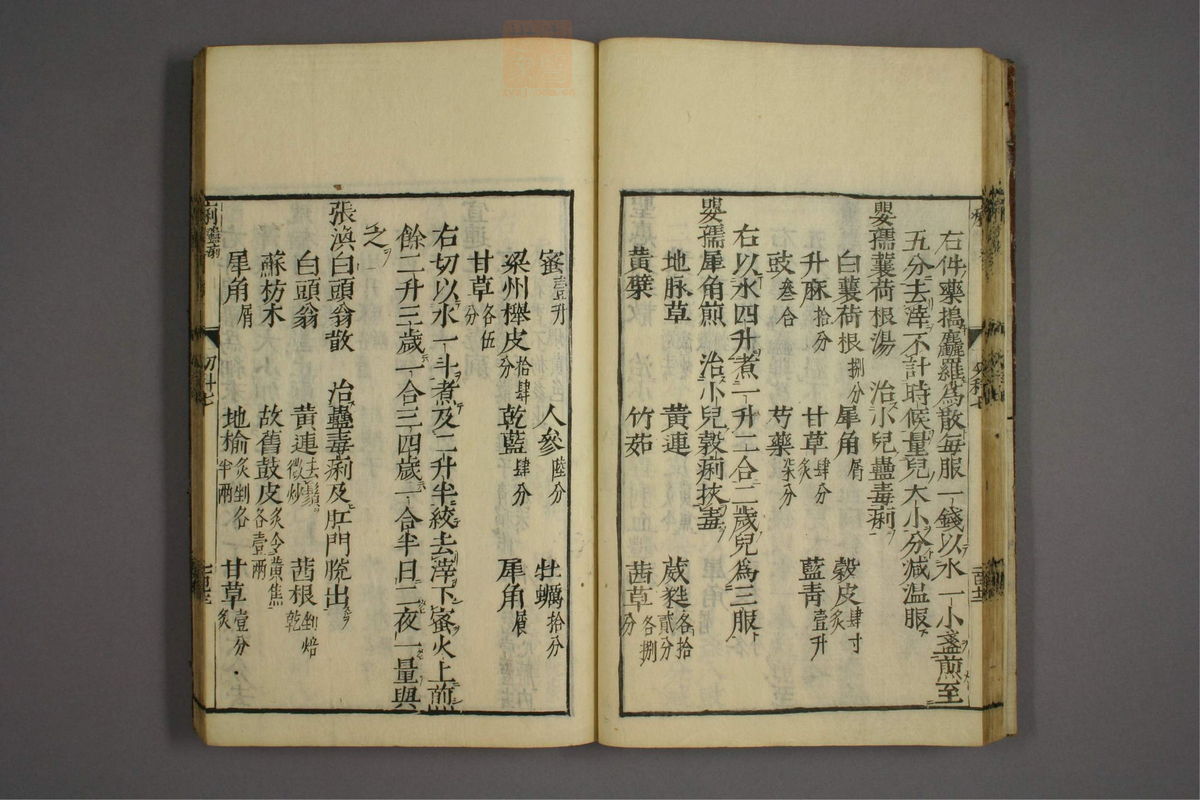 右件藥搗麤羅為散每服一錢以水一小盞煎至
五分去滓不計時候量兒大小分減温服
嬰孺蘘荷根湯 治小兒蠱毒痢
白蘘荷根捌分 犀角屑 穀皮肆寸炙
升麻拾分 甘草肆分炙 藍青壹升
豉叁合 芍藥柒分
右以水四升煮一升二合二歲兒為三服
嬰孺犀角煎 治小兒穀痢挾毒
地脉草 黃連 葳蕤各拾貳分
黃蘗 竹茹 茜草各捌分
蜜壹升 人參陸分 牡蠣拾分
梁州櫸皮拾肆分 乾藍肆分 犀角屑
甘草各伍分
右切以水一斗煮及二升半絞去滓下蜜火上煎
餘二升三歲一合三四歲一合半日二夜一量與
之
張渙白頭翁散 治蠱毒痢及肛門脫出
白頭翁 黃連去鬚微炒 茜根剉焙乾
蘇枋木 故舊鼓皮炙令黃焦各壹兩
犀角屑 地榆炙剉各半兩 甘草壹分炙